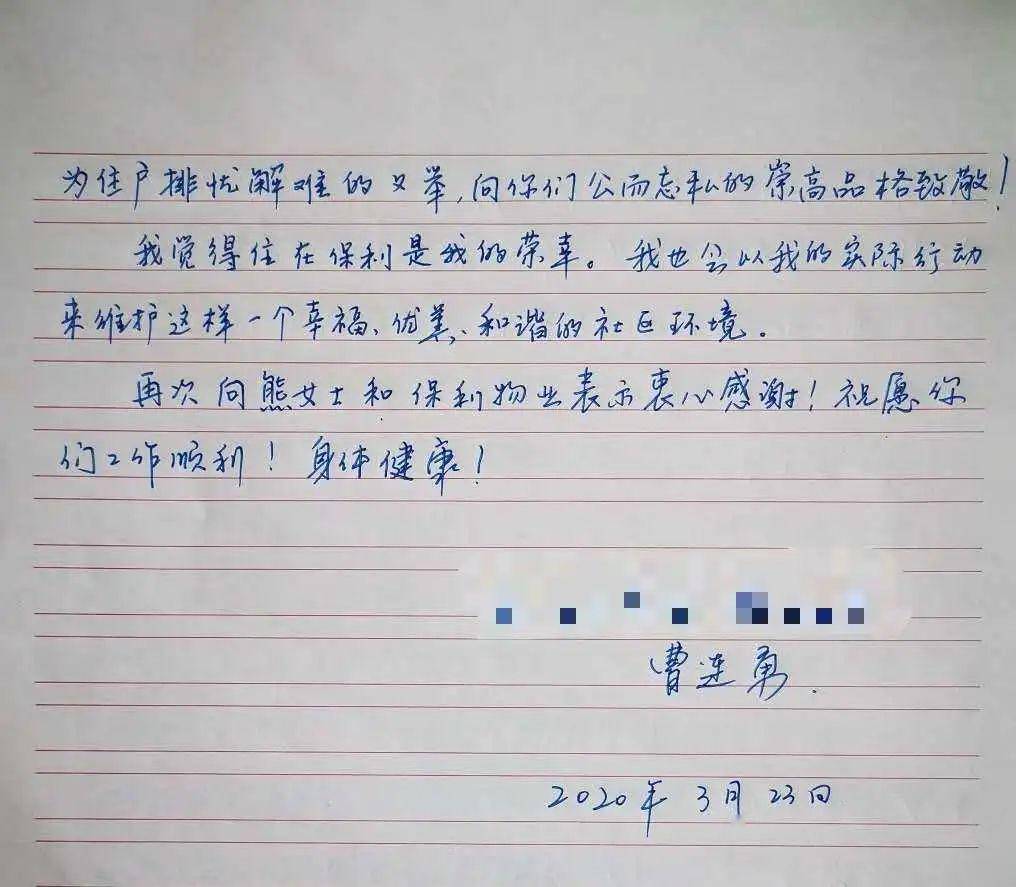 为住户排忧解难的义举,向你们公而忘私的崇高品格致敬!
我觉得住在保利是我的荣幸。我也会以我的实际行动
来维护这样一个幸福、优美、和谐的社区环境。
再次向熊女士和保利物业表示衷心感谢!祝愿你
们工作顺利!身体健康!
曹连勇.
2020年3月23日